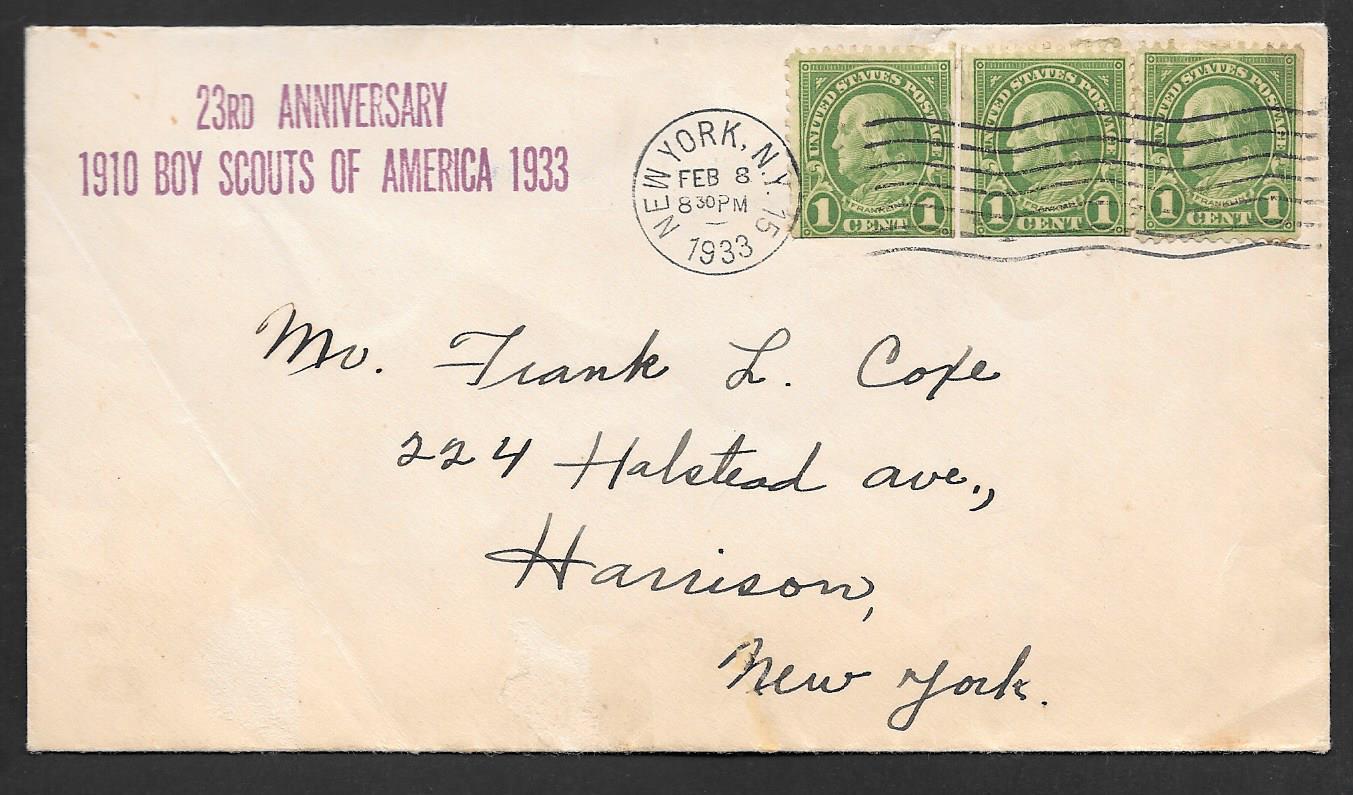 23RD ANNIVERSARY
1910 BOY SCOUTS OF AMERICA 1933
NEW YORK, N.Y. 15
FEB 8
8 30 PM
1933
UNITED STATES POSTAGE
FRANKLIN
1 CENT 1
UNITED STATES POSTAGE
FRANKLIN
1 CENT 1
UNITED STATES POSTAGE
FRANKLIN
1 CENT 1
Mr. Frank L. Coxe
224 Halstead ave.,
Harrison,
New York.